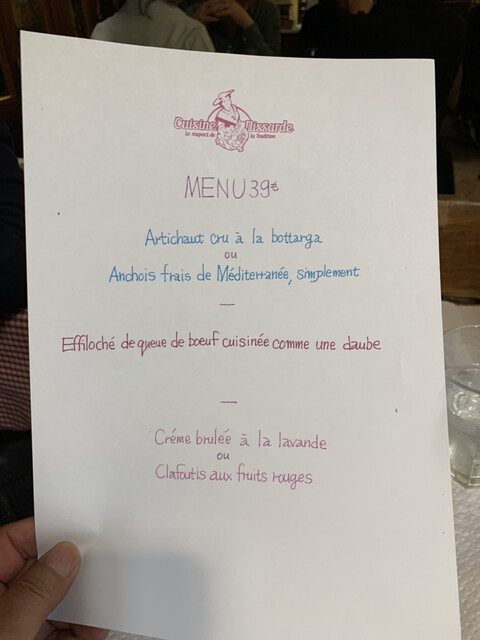 Cuisine Nissarde
Le respect de la Tradition
MENU 39€
Artichaut cru à la bottarga
ou
Anchois frais de Méditerranée, simplement
—
Effiloché de queue de boeuf cuisinée comme une daube
—
Créme brulée à la lavande
ou
Clafoutis aux fruits rouges